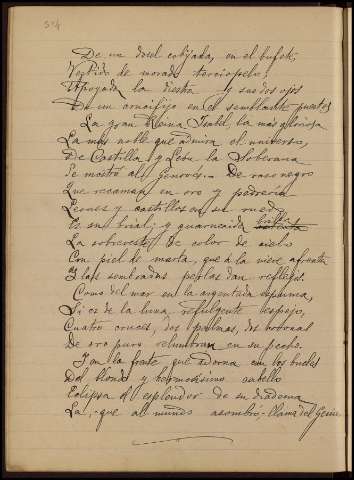 De un dosel cobijada, en el bufete,
Vestido de morado terciopelo,
Apoyada la diestra y sus dos ojos
De un crucifijo en el semblante puestos
La gran Reina Isabel, la más gloriosa
La más noble que admira el universo,
De Castilla y León la Soberana
Se mostró al genovés. De raso negro
Que recaman en oro y pedrería
Leones y castillos en su ruedo,
Es su brial; y guarnecida
La sobreveste de color de cielo
Con piel de marta, que á la nieve afrenta
Y las sembradas perlas dan reflejos.
Como del mar en la argentada espuma,
Si es de la luna, refulgente espejo,
Cuatro cruces, dos palmas, dos
De oro puro relumbran en su pecho.
I en la frente que adorna con los bucles
Del blondo y hermosísimo cabello
Eclipsa el esplendor de su diadema
La, que al mundo asombró, llama del Genio